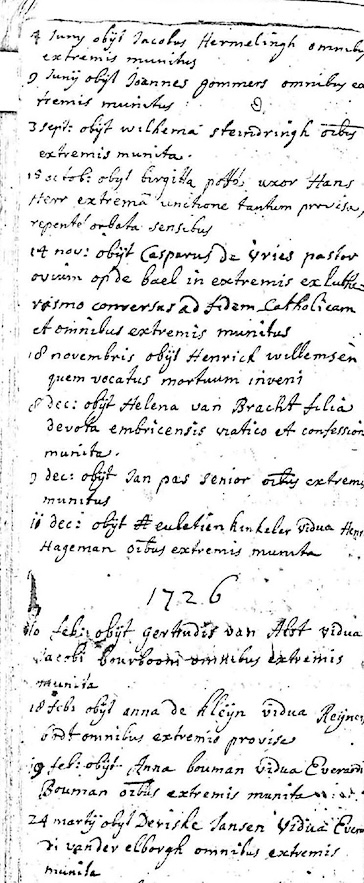 4 Junij obijt Jacobus Hermelingh omnibus
extremis munitus
9 Junij obijt Joannes gommers omnibus ex
tremis munitus
3 sept: obijt wilhema steindringh oibus
extremis munita.
15 octob: obijt birgitta potto, uxor Hans
Herr extrema unitione tantum provisa,
repente orbata sensibus
14 nov: obijt Casparus de Vries pastor
ovium op de bael in extremis ex luthe-
rasmo conversus ad fidem Catholicam
et omnibus extremis munitus
18 novembris obijt Henrick willemsen
quem vocatus mortuum inveni
8 dec: obijt Helena van Bracht filia
devota embricensis viatico et confession
munita.
9 dec: obijt Jan pas senior oibus extremis
munitus
11 dec: obijt Heuletien hinkeler vidua Henr
Hageman oibus extremis munita
1726
10 feb: obijt gertrudis van Abt vidua
Jacobi bourboom omnibus extremis
munita
18 feb: obijt anna de kleijn vidua Reijner
ordt omnibus extremis provisa
19 feb: obijt Anna bouman vidua Everardi
Bouman oibus extremis munita
24 martij obijt Deriske Jansen Vidua Ever
di vander elborgh omnibus extremis
munita